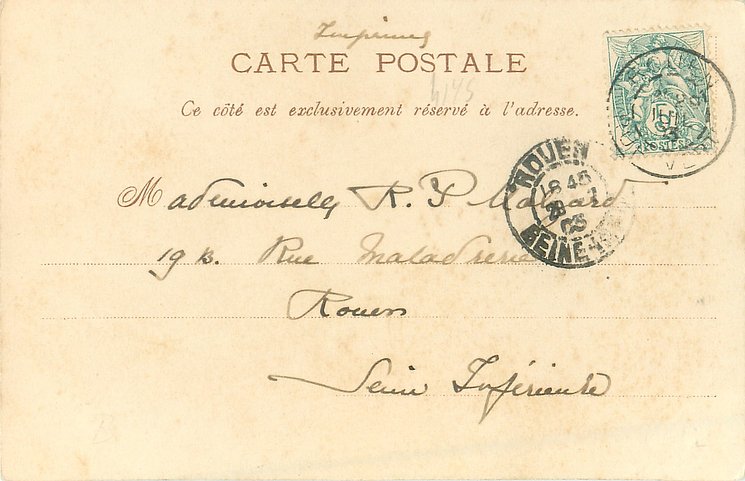 Imprimés
CARTE POSTALE
Ce côté est exclusivement réservé à l'adresse.
POSTES
ROUEN
18 45
28
03
SEINE-INF
Mademoiselle R. P. Malvard
19 B. Rue Maladrerie
Rouen
Seine Inférieure